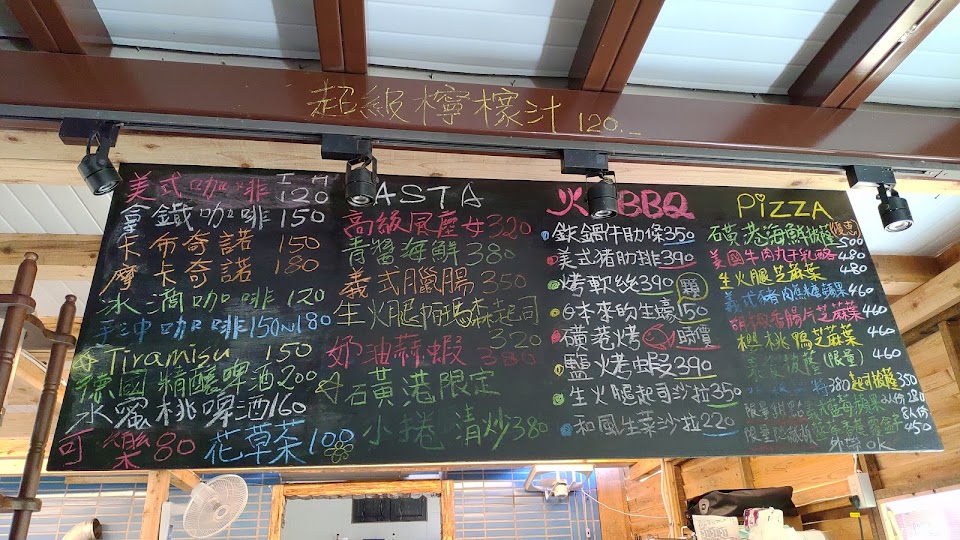 超級檸檬汁 120.-
美式咖啡 120
拿鐵咖啡 150
卡布奇諾 150
摩卡奇諾 180
冰滴咖啡 120
手沖咖啡 150~180
Tiramisu 150
德國精釀啤酒 200
水蜜桃啤酒 160
可樂 80
花草茶 100
PASTA
高級展慶女 320
青醬海鮮 380
義式臘腸 350
生火腿帕瑪森起司 320
奶油蒜蝦 380
石黃港限定
小捲 清炒 380
火 BBQ
鈇鍋牛肋條 350
美式豬肋排 390
烤軟絲 390
日本來的生蠔 150
磺港烤 時價
鹽烤白蝦 390
生火腿起司沙拉 350
和風生菜沙拉 220
PiZZA
石黃港海鮮披薩 優惠 500
美國牛肉丸子乳酪 480
生火腿芝麻葉 480
義式豬肉 460
胡椒香腸片芝麻葉 460
櫻桃鴨芝麻葉 460
(限量) 460
380 起司披薩 350
限量 280
限量 450
外帶 OK